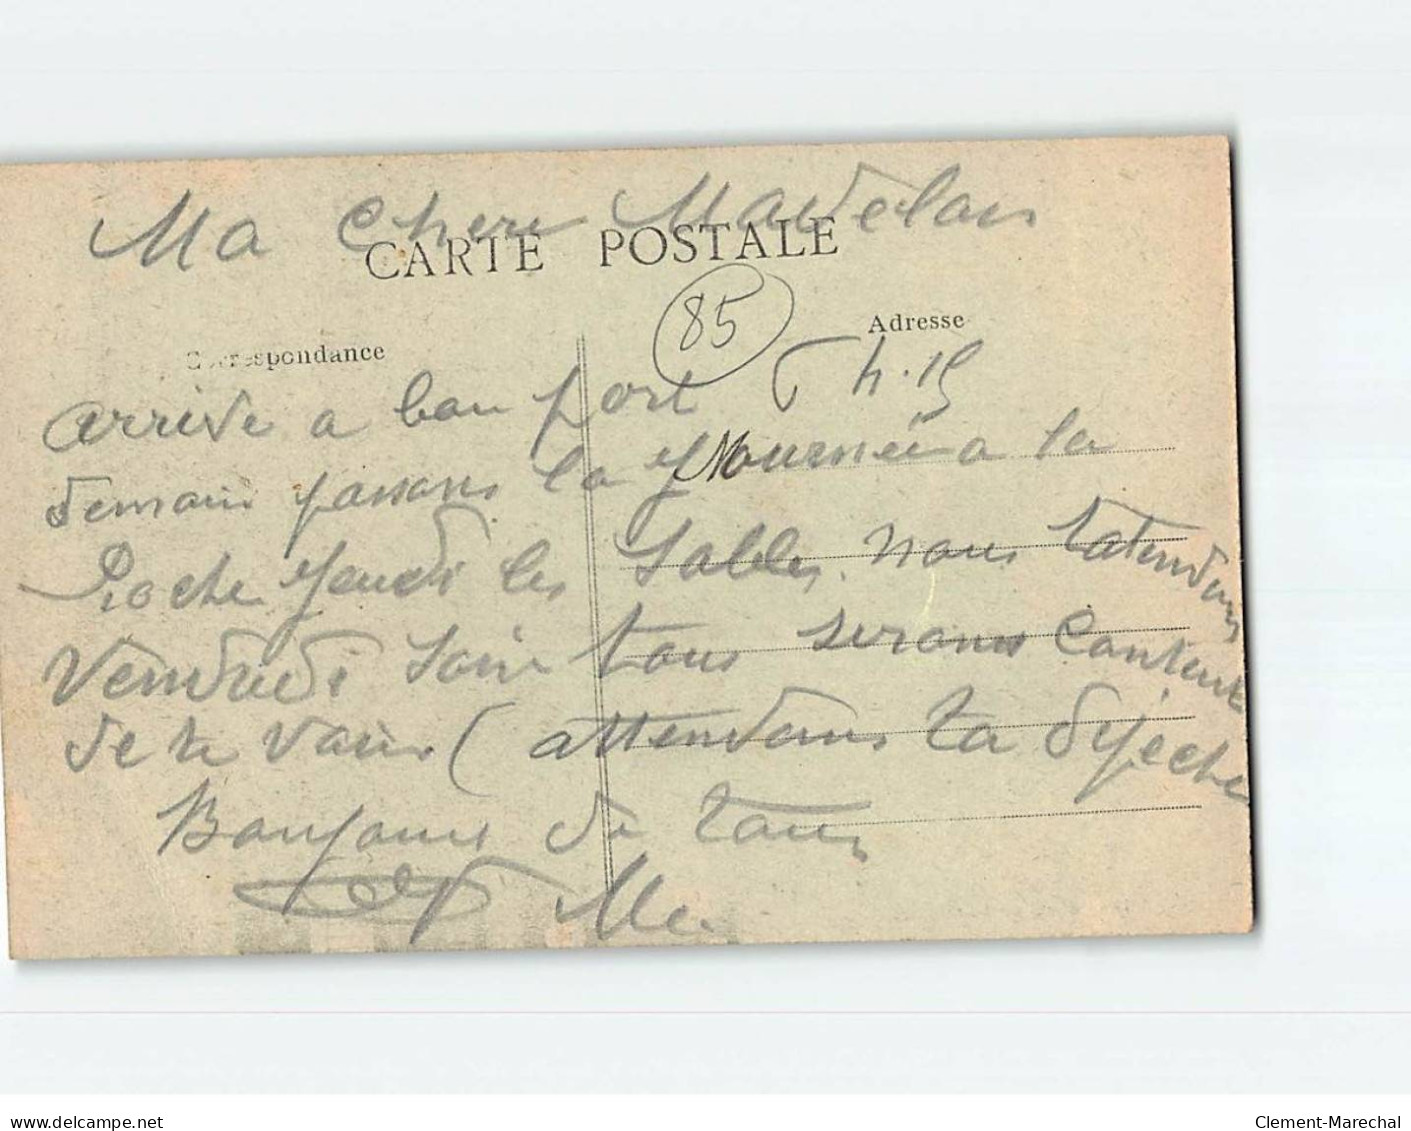 Ma Chere Madelan
CARTE POSTALE
85
Correspondance
Adresse
arrive a bon port 6 h. 15
demain passons la Journeé a la
Roche Jeudi les Sables. nous tatendons
Vendredi Soir tous serons Contents
de te voir ( attendons ta depeche
Bonjours de tous
delcampe.net
Clement-Marechal